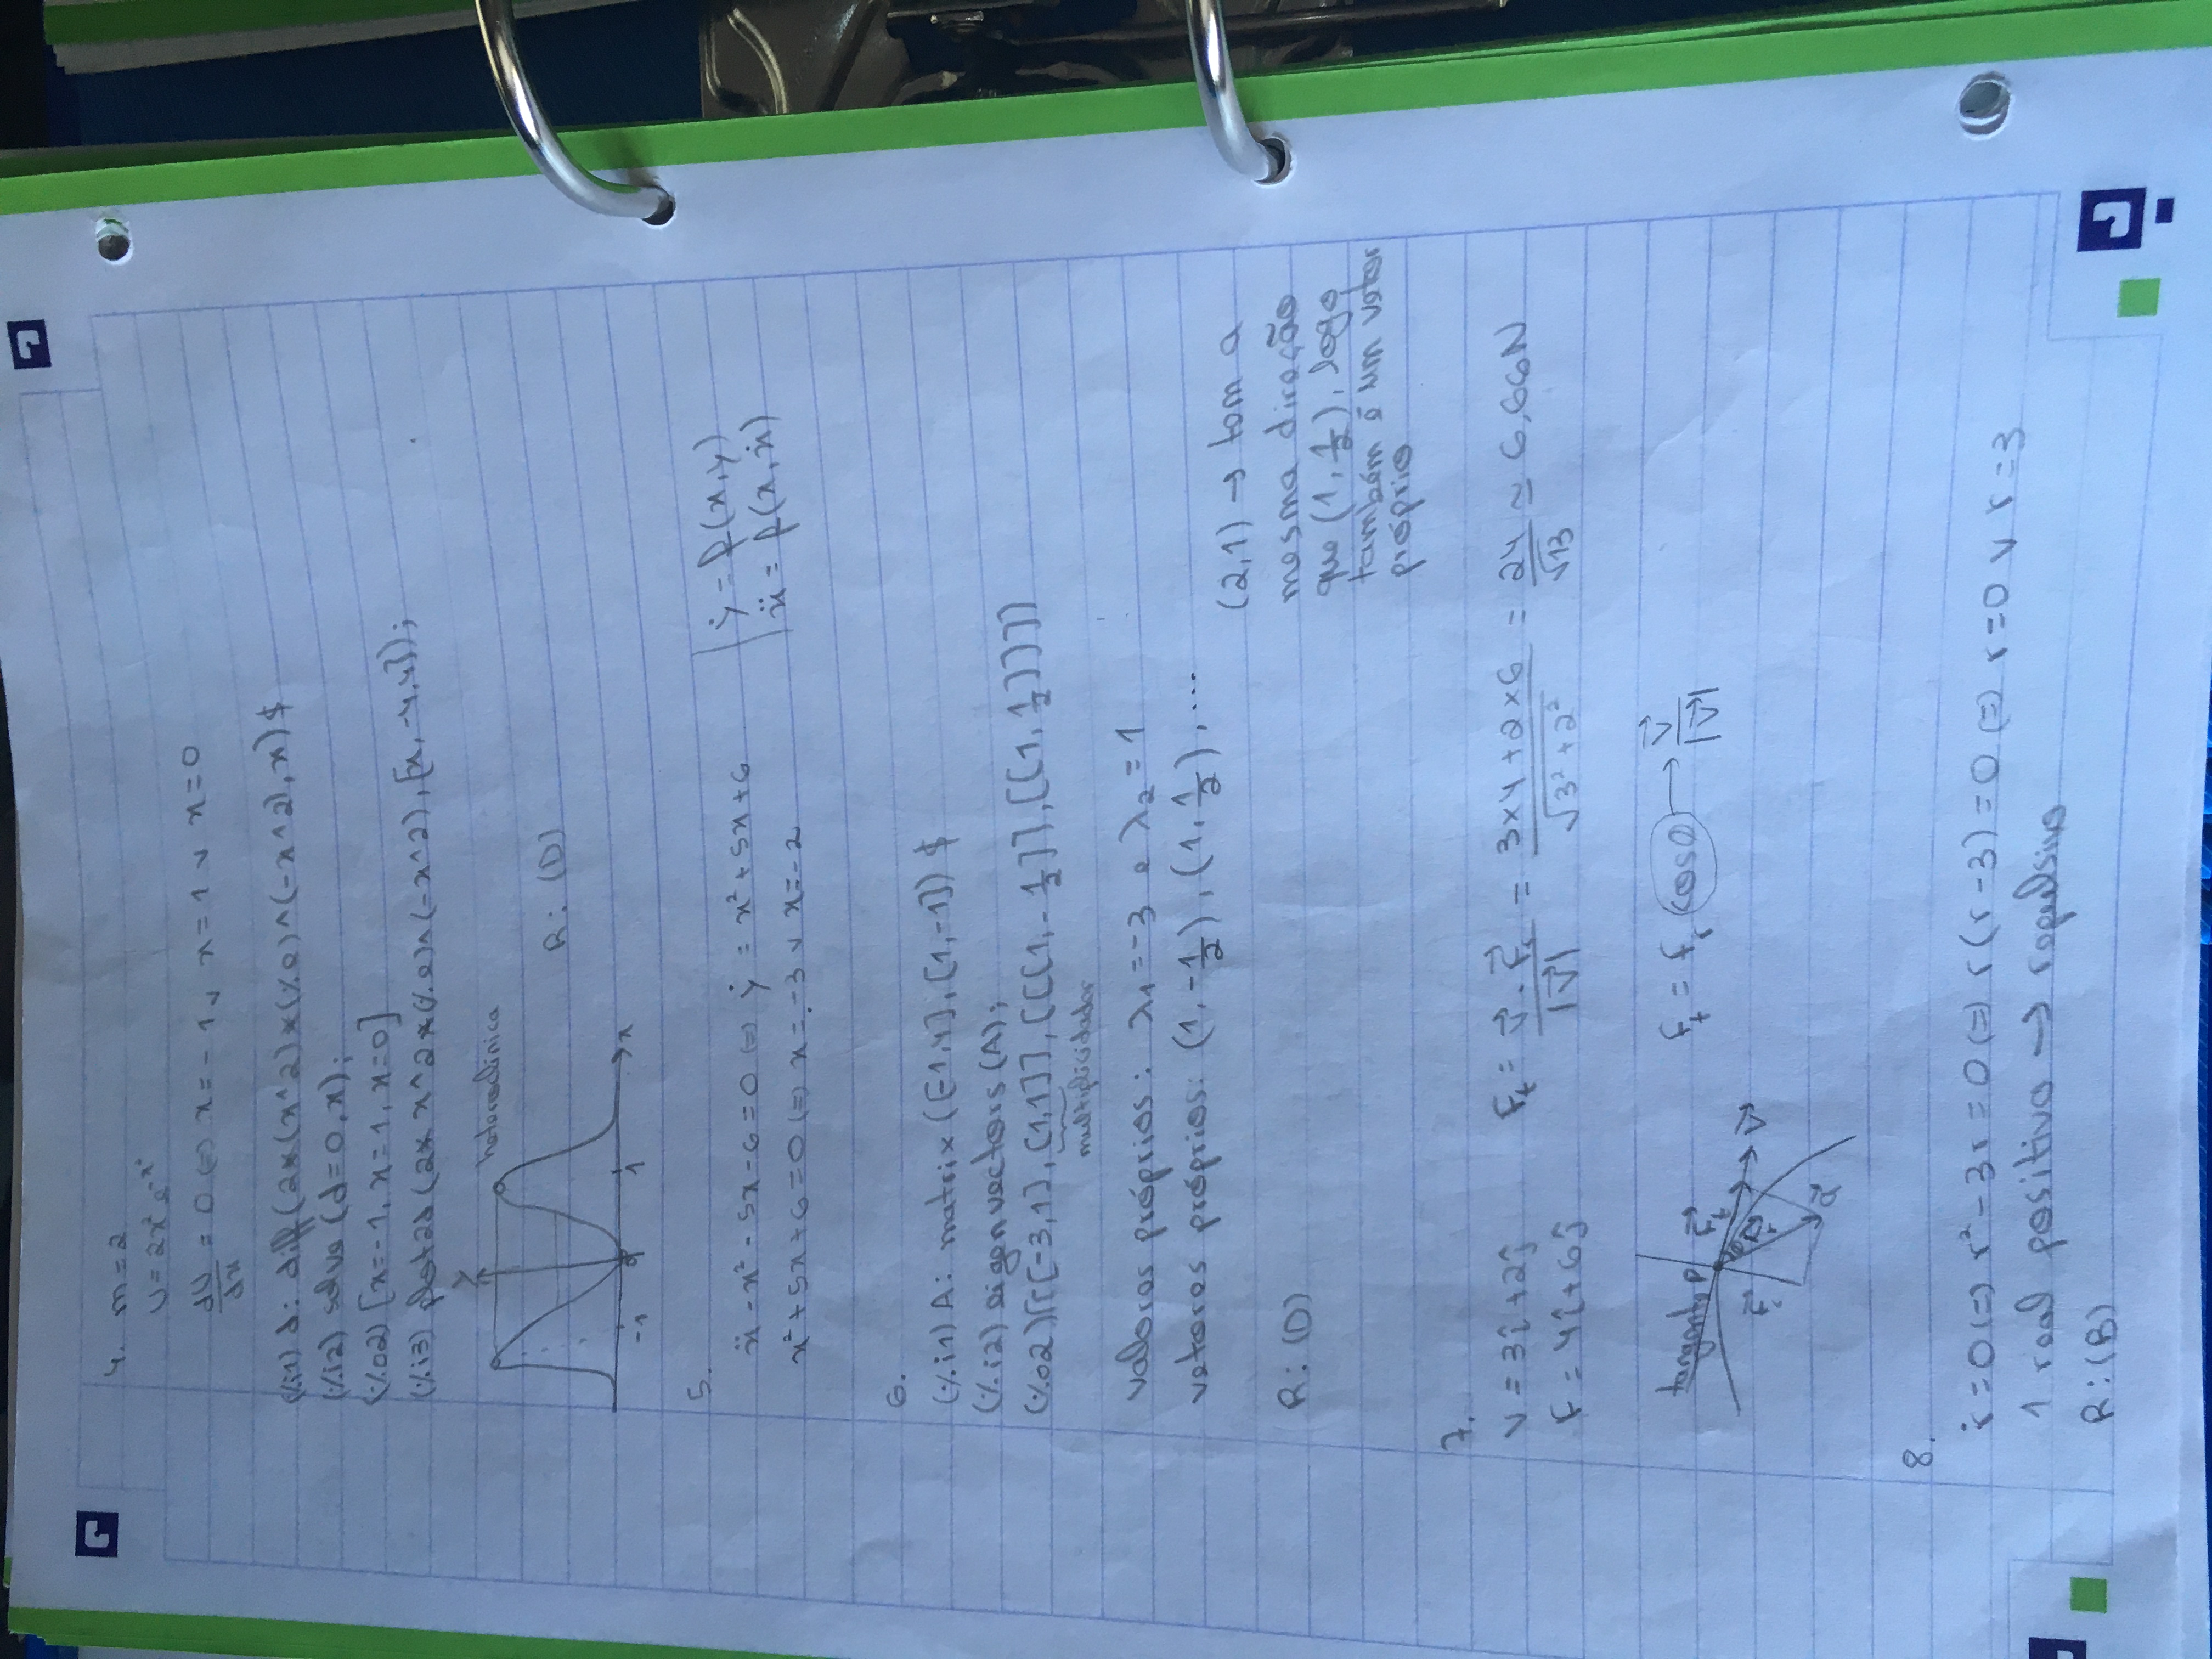 4. m = 2
U = 2x² e^-x²
dU/dx = 0 (=) x = -1 v x = 1 v x = 0
(%i1) d: diff(2*(x^2)*(%e)^(-x^2),x)$
(%i2) solve (d=0,x);
(%o2) [x=-1, x=1, x=0]
(%i3) plot2d(2* x^2*(%e)^(-x^2),[x,-4,4]);
y
heteroclínica
R: (D)
-1 1 x
5.
ẍ - x² - 5x - 6 = 0 (=) ẏ = x² + 5x + 6
x² + 5x + 6 = 0 (=) x = -3 v x = -2
ẏ = f(x,y)
ẍ = f(x,ẋ)
6.
(%i1) A: matrix ([-1,4],[1,-1]) $
(%i2) eigenvectors (A);
(%o2) [[[-3,1],[1,1]],[[[1,-1/2]],[[1,1/2]]]]
multiplicidador
valores próprios: λ1 = -3 e λ2 = 1
vetores próprios: (1, -1/2), (1, 1/2), ...
(2,1) → tem a
mesma direção
que (1, 1/2), logo
também é um vetor
próprio
R: (D)
7.
v = 3î + 2ĵ
F = 4î + 6ĵ
Ft = v⃗ . F⃗r / |v⃗| = 3×4 + 2×6 / √3² + 2² = 24/√13 ≃ 6,66N
tangente P F⃗t v⃗
a⃗
Ft = Fr cosθ → v⃗/|v⃗|
8.
ṙ = 0 (=) r² - 3r = 0 (=) r(r - 3) = 0 (=) r = 0 v r = 3
1 real positivo → repulsivo
R: (B)